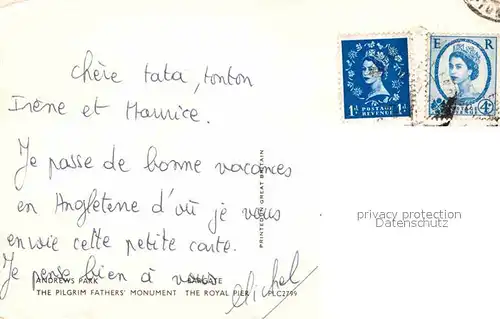 chère tata, tonton
Irène et Maurice.
Je passe de bonne vacances
en Angleterre d'où je vous
envoie cette petite carte.
Je pense bien à vous
Michel
ANDREWS PARK BARGATE
THE PILGRIM FATHERS' MONUMENT THE ROYAL PIER PLC2799
PRINTED IN GREAT BRITAIN
1D POSTAGE REVENUE 1D
E R
4D
privacy protection
Datenschutz